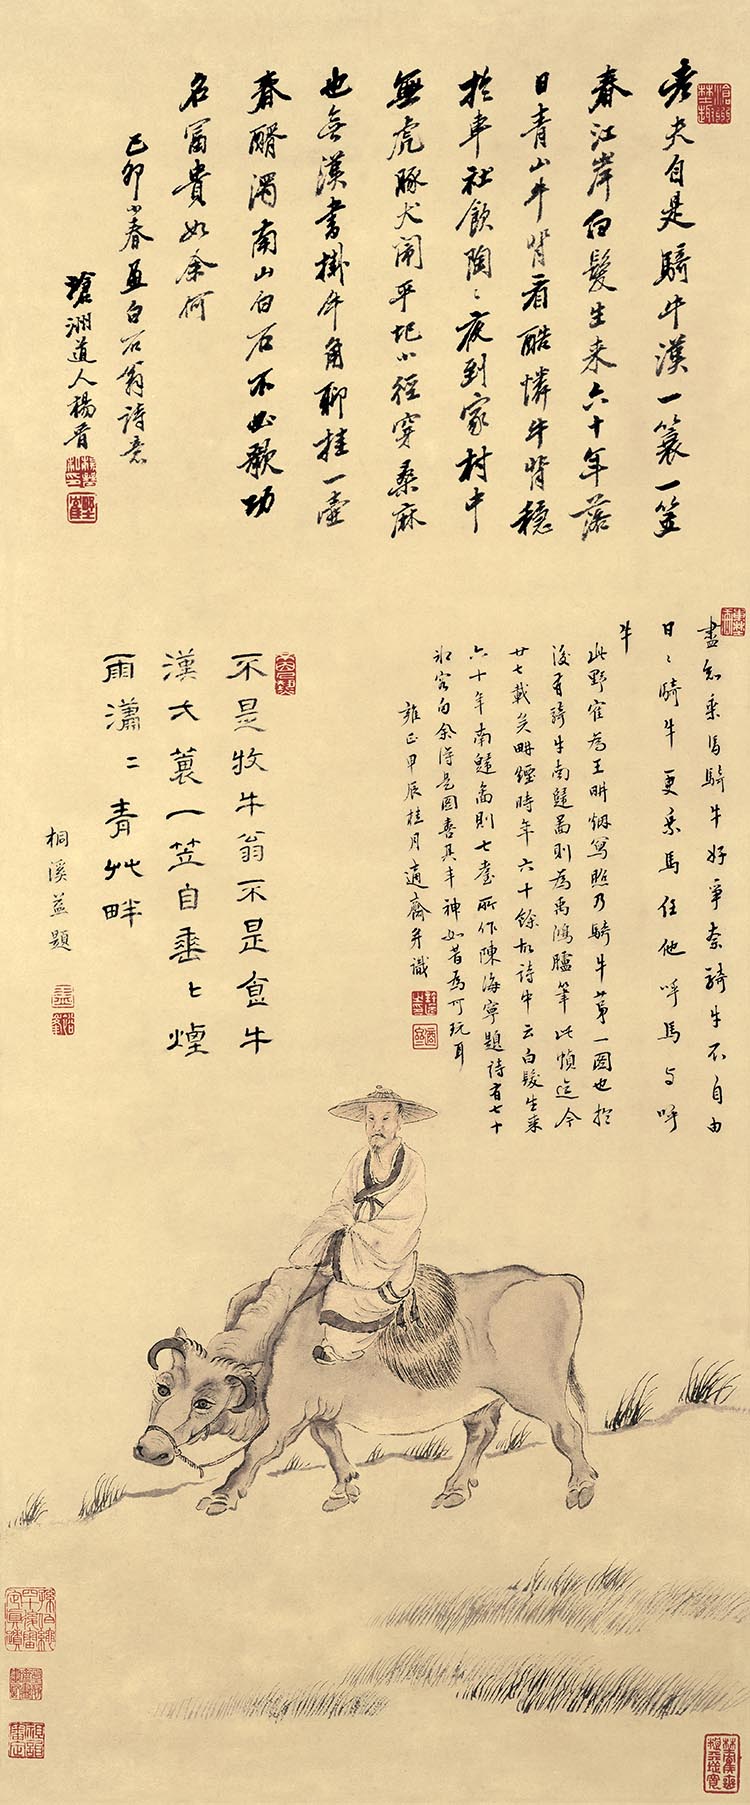 老夫自是騎牛漢一蓑一笠
春江岸白髮生來六十年落
日青山牛背看酷憐牛背穩
於車社飲陶〻夜到家村中
無虎豚犬鬧平圯小徑穿桑麻
也無漢書掛牛角聊挂一壺
春醑濁南山白石不必歌功
名富貴如余何
己卯小春畫白石翁詩意
洲道人楊晉
盡知乘馬騎牛好爭奈騎牛不自由
日〻騎牛更乘馬任他呼馬与呼
牛
此野隺為王畊烟寫照乃騎牛第一圖也於
後有騎牛南啚則為禹鴻臚筆此幀迄今
廿七載矣畊煙時年六十餘故詩中云白髮生來
六十年南啚則七耋所作陳海寧題詩有七十
客句余得是圖喜其丰神如昔為可玩耳
雍正甲辰桂月適齋并識
不是牧牛翁不是食牛
漢弋蓑一笠自垂〻煙
雨瀟〻青艸畔
桐溪益題